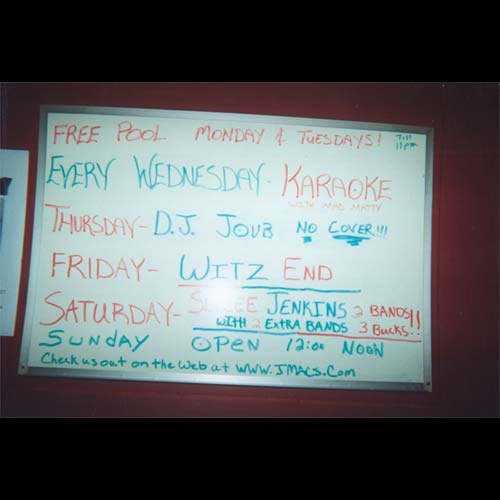 FREE POOL MONDAY & TUESDAYS! Till 11pm
EVERY WEDNESDAY - KARAOKE
WITH MAD MATTY
THURSDAY - D.J. JOUB NO COVER!!!
FRIDAY - WITZ END
SATURDAY - JENKINS 2 BANDS!!
WITH 2 EXTRA BANDS 3 BUCKS!!
SUNDAY OPEN 12:00 NOON
Check us out on the Web at WWW.JMACS.Com